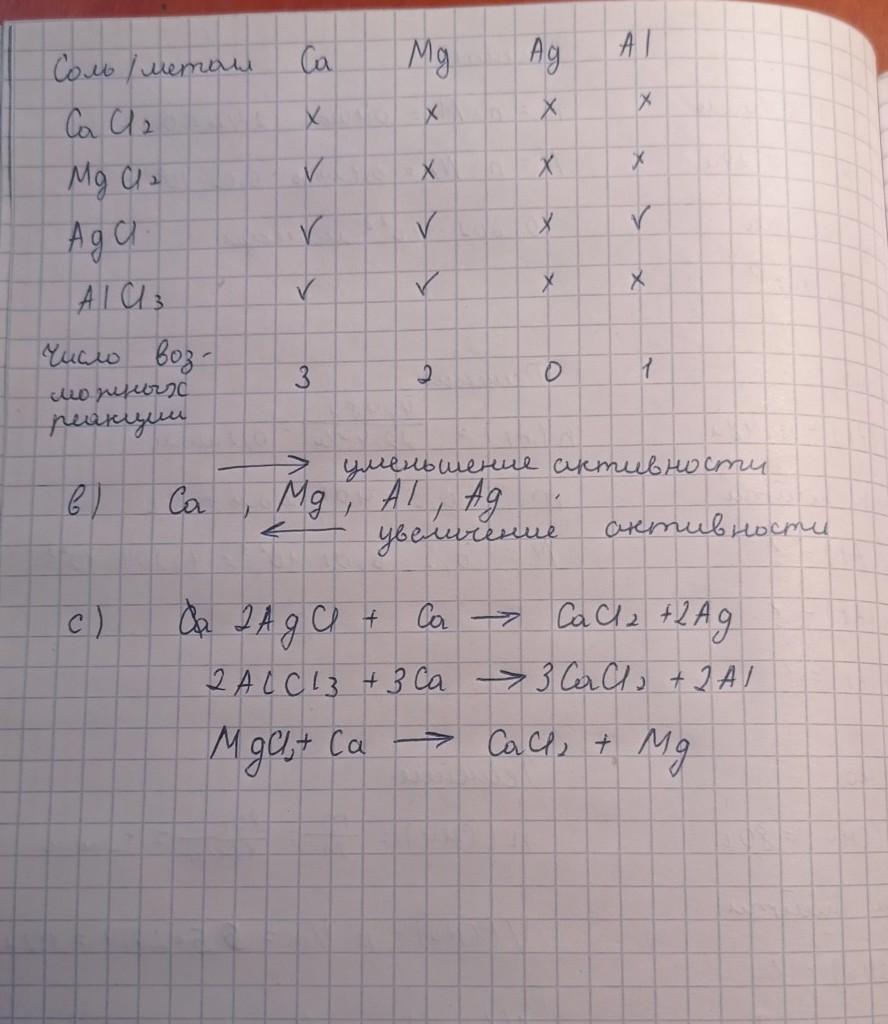 Соль/металл Ca Mg Ag Al
CaCl₂ x x x x
MgCl₂ √ x x x
AgCl √ √ x √
AlCl₃ √ √ x x
Число воз-
можных
реакции 3 2 0 1
→ уменьшение активности
в) Ca , Mg , Al , Ag
← увеличение активности
с) 2AgCl + Ca → CaCl₂ + 2Ag
2AlCl₃ + 3Ca → 3CaCl₂ + 2Al
MgCl₂ + Ca → CaCl₂ + Mg